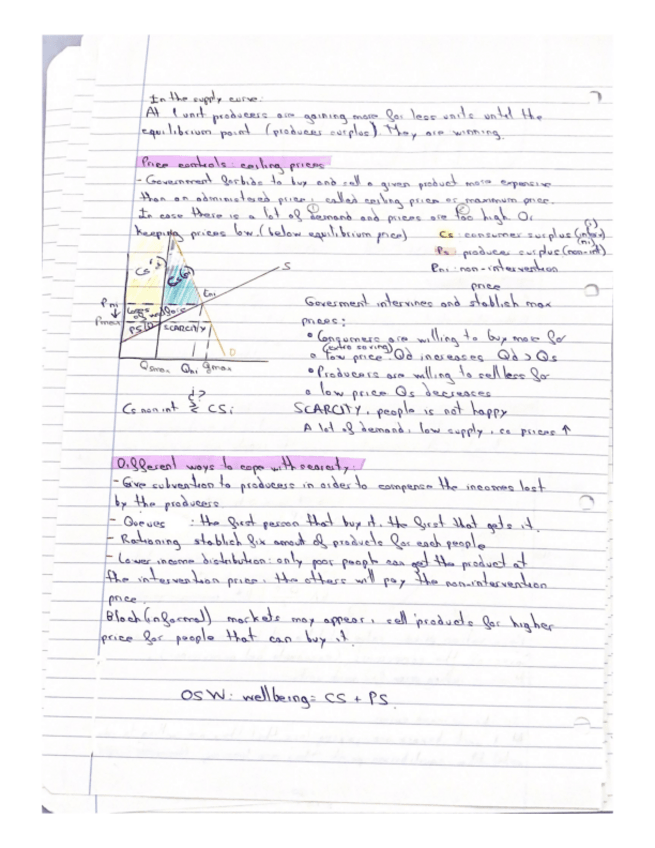 In the supply curve:
At 1 unit producers are gaining more for less units until the
equilibrium point (producer surplus). They are winning.
Price controls: ceiling prices
- Government forbids to buy and sell a given product more expensive
than an administered price, called ceiling price or maximum price.
In case there is a lot of demand and prices are too high. Or
keeping prices low. (below equilibrium price)
Cs: consumer surplus
Ps: producer surplus (non-int)
Pni: non-intervention
price
Cs
S
Eni
Pni
Pmax
Loss of welfare
PS
SCARCITY
D
Qsmax Qni Qmax
Goverment intervines and stablish max
prices:
• Consumers are willing to buy more for
(extra saving)
a low price. Qd increases Qd > Qs
• Producers are willing to sell less for
a low price Qs decreases
Cs non int ? CSi
SCARCITY, people is not happy
A lot of demand, low supply, so prices ↑
Different ways to cope with scarcity:
- Give subvention to producers in order to compense the incomes lost
by the producers
- Queues : the first person that buy it, the first that gets it.
- Rationing stablish fix amout of products for each people
- Lower income distribution: only poor people can get the product at
the intervention price, the others will pay the non-intervention
price.
Black (informal) markets may appear, sell products for higher
price for people that can buy it.
OSW: wellbeing = CS + PS.